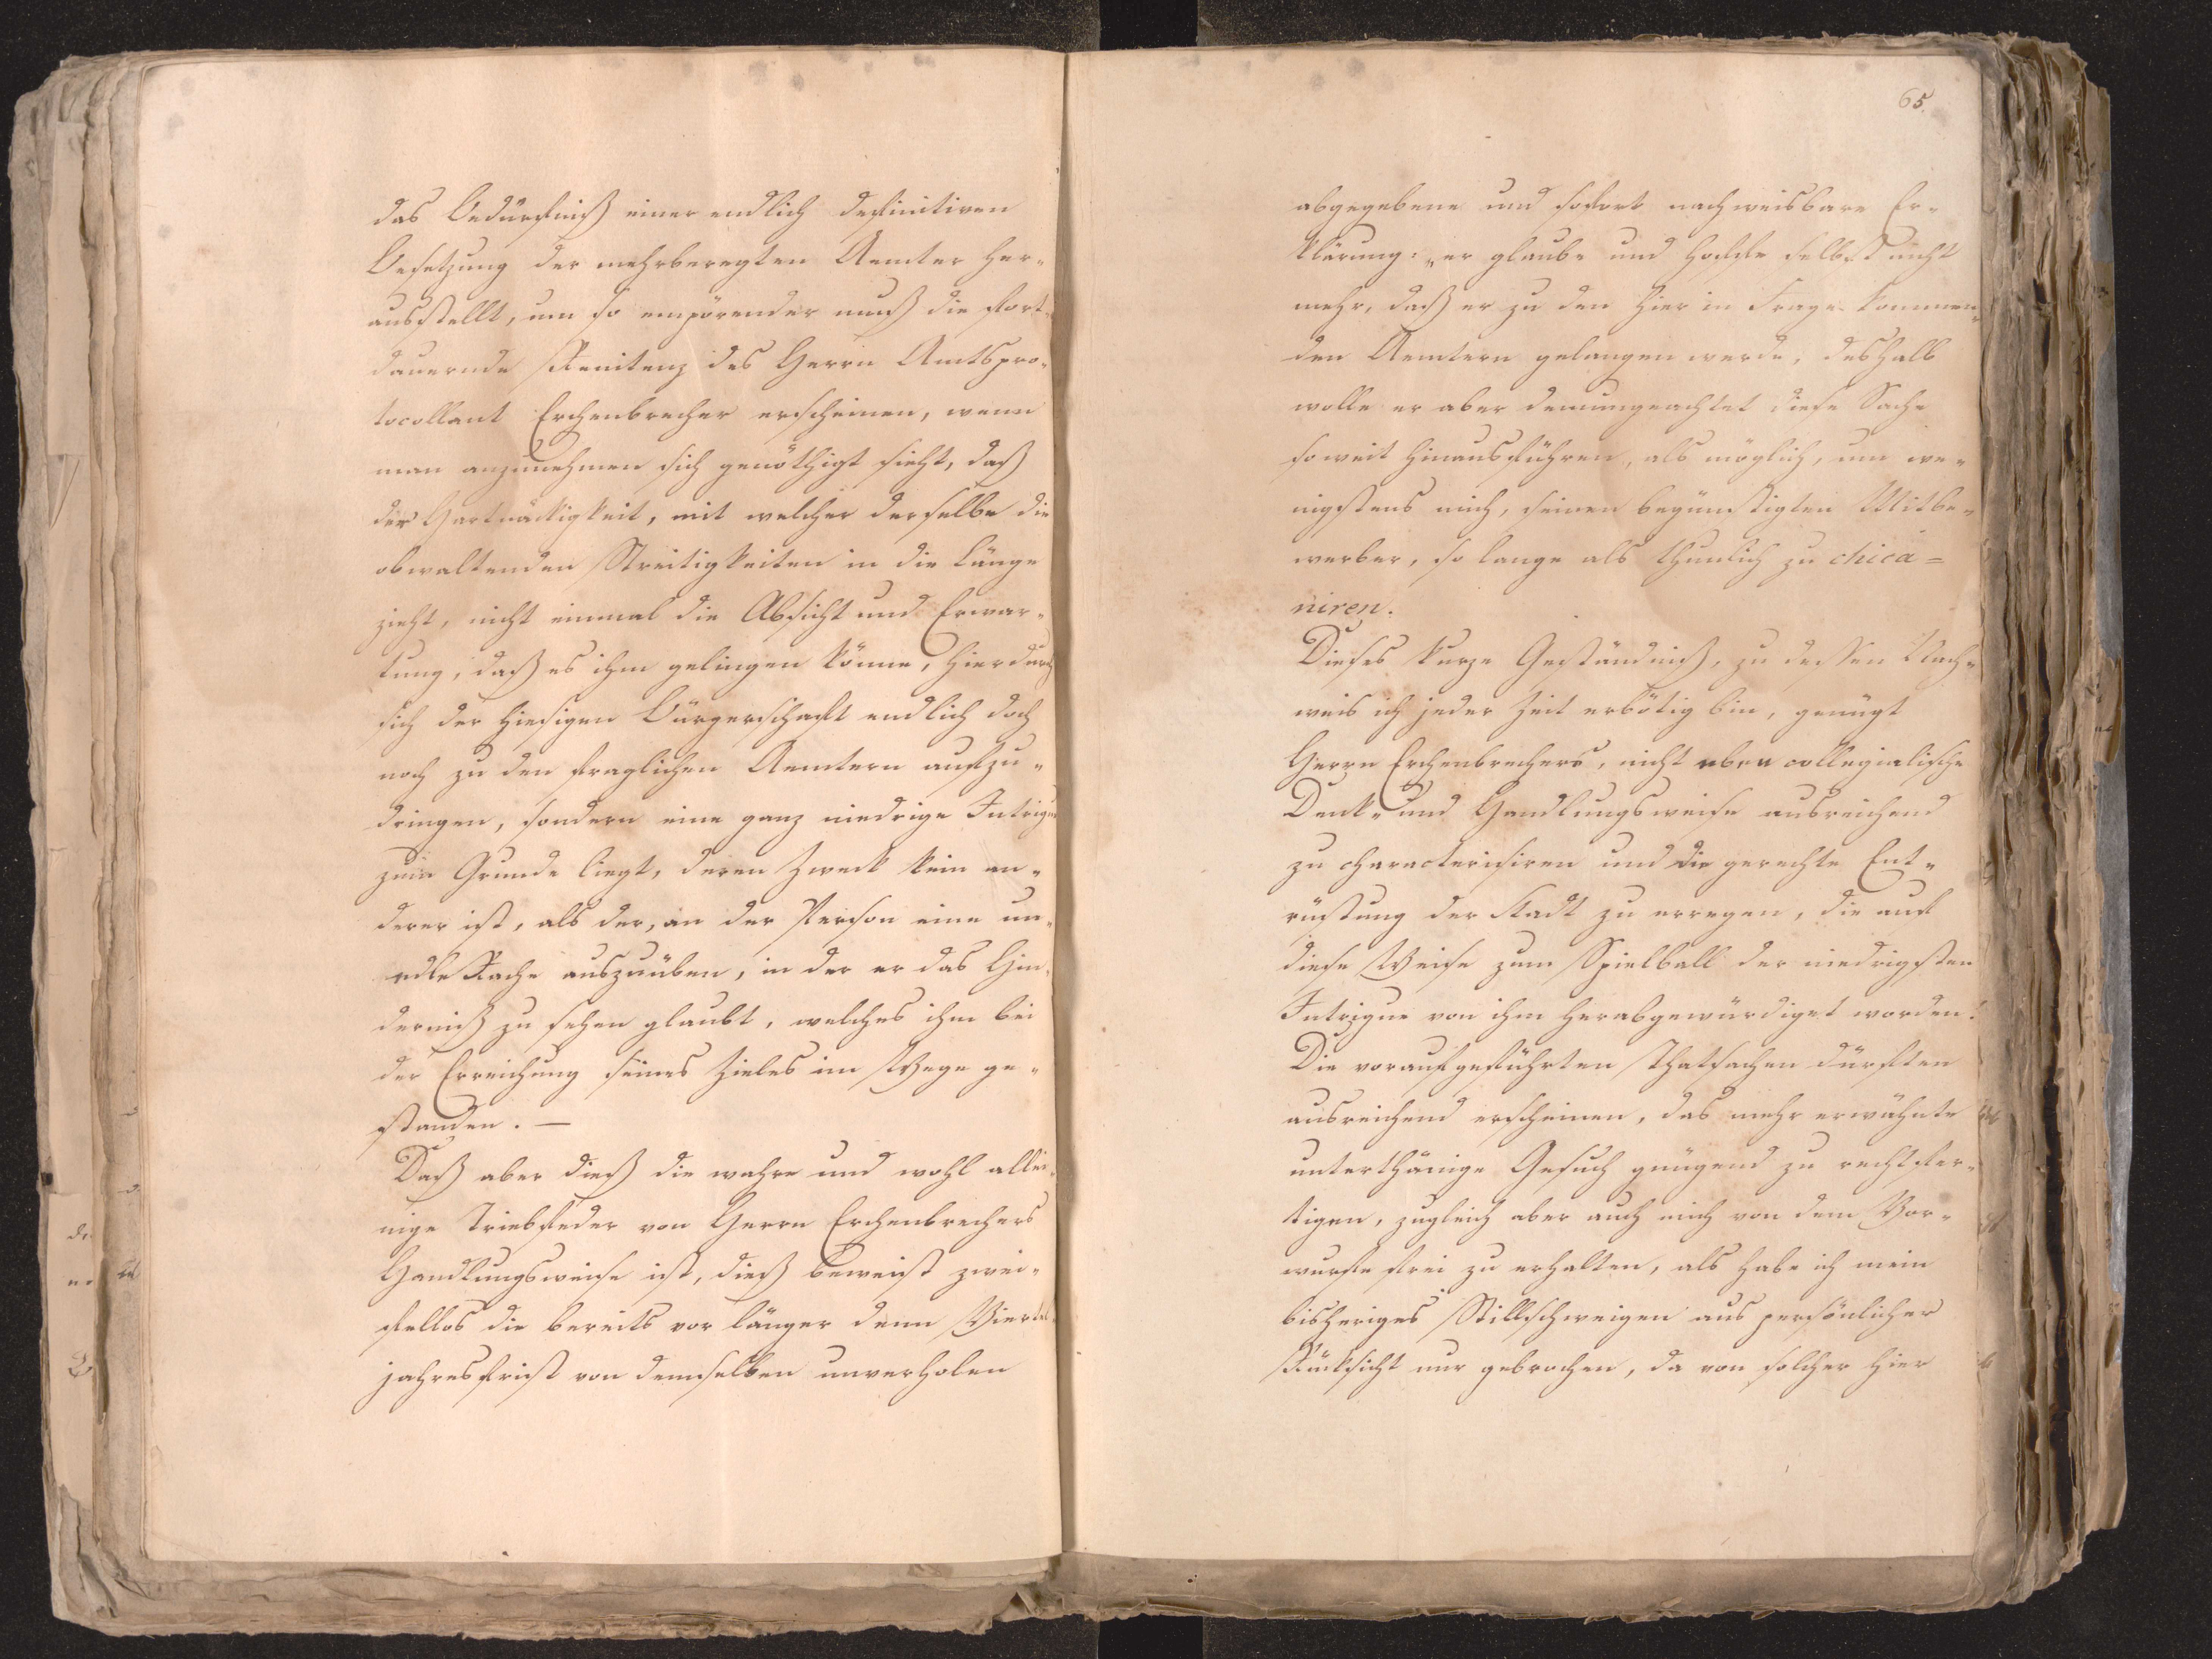 das Bedürfniß einer endlich definitiven
Besetzung der mehrberegten Aemter her-
ausstellt, um so empörender muß die fort-
dauernde Renitenz des Herrn Amtspro-
tocollant Erchenbrecher erscheinen, wenn
man anzunehmen sich genöthigt sieht, daß
der Hartnäckigkeit, mit welcher derselbe die
obwaltenden Streitigkeiten in die Länge
zieht, nicht einmal die Absicht und Erwar-
tung, daß es ihm gelingen könne, hierdurch
sich der hiesigen Bürgerschaft endlich doch
noch zu den fraglichen Aemtern aufzu-
dringen, sondern eine ganz niedrige Intrigue
zum Grunde liegt, deren Zweck kein an-
derer ist, als der, an der Person eine un-
edle Rache auszuüben, in der er das Hin-
derniß zu sehen glaubt, welches ihm bei
der Erreichung seines Zieles im Wege ge-
standen. —
Daß aber dieß die wahre und wohl allei-
nige Triebfeder von Herrn Erchenbrechers
Handlungsweise ist, dieß beweist zwei-
fellos die bereits vor länger denn Viertel-
jahresfrist von demselben unverholen
65.
abgegebene und sofort nachweisbare Er-
klärung: „er glaube und hoffe selbst nicht
mehr, daß er zu den hier in Frage kommen-
den Aemtern gelangen werde, deshalb
wolle er aber demungeachtet diese Sache
soweit hinausführen, als möglich, um we-
nigstens mich, seinen begünstigten Mitbe-
werber, so lange als thunlich zu chica=
niren.
Dieses kurze Geständniß, zu dessen Nach-
weis ich jeder Zeit erbötig bin, genügt
Herrn Erchenbrechers, nicht eben collegialische
Denk- und Handlungsweise ausreichend
zu characterisiren und die gerechte Ent-
rüstung der Stadt zu erregen, die auf
diese Weise zum Spielball der niedrigsten
Intrigue von ihm herabgewürdiget worden!
Die voraufgeführten Thatsachen dürften
ausreichend erscheinen, das mehr erwähnte
unterthänige Gesuch gnügend zu rechtfer-
tigen, zugleich aber auch mich von dem Vor-
wurfe frei zu erhalten, als habe ich mein
bisheriges Stillschweigen aus persönlicher
Rücksicht nur gebrochen, da von solcher hier